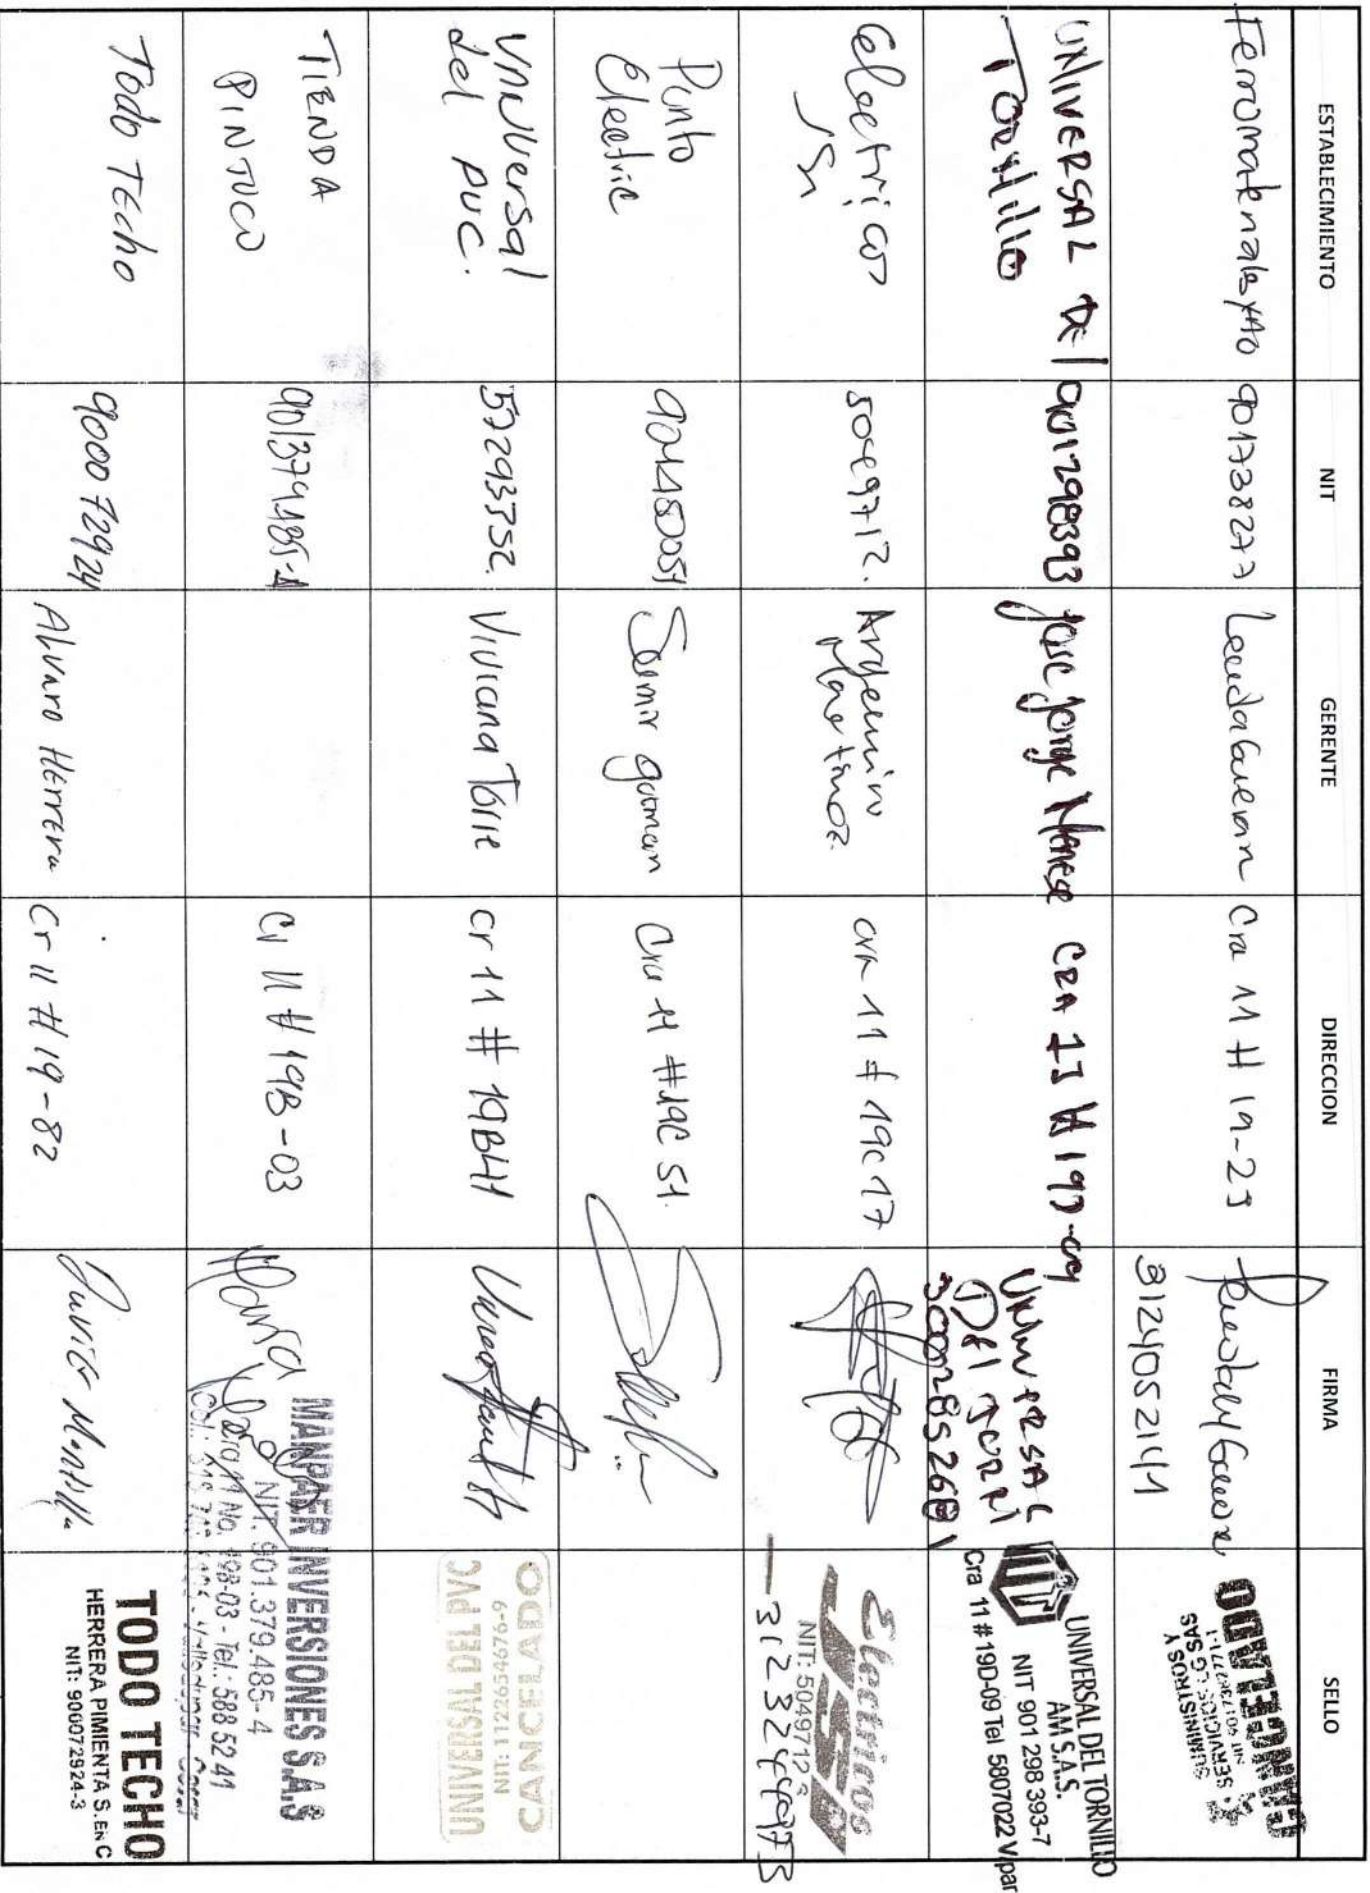 ESTABLECIMIENTO
NIT
GERENTE
DIRECCION
FIRMA
SELLO
901738277
Cra 11 # 19-25
3124052141
CANCELADO
SUMINISTROS Y
SERVICIOS LG SAS
UNIVERSAL DEl
Tornillo
901298393
Jose Jorge
CRA 11 # 19D-09
UNIVERSAL
DEl TORNI
3002852681
UNIVERSAL DEL TORNILLO
AM S.A.S.
NIT 901 298 393-7
Cra 11 # 19D-09 Tel 5807022 V/par
Electricos
JSP
5049712.
Argemiro
Martinez
cra 11 # 19C 17
Electricos
JSP
NIT: 5049712
3123244973
Punto
Electric
Samir guzman
Cra 11 #19C 51.
UNIVersal
del PVC.
57293752.
Viviana Torre
Cr 11 # 19B41
CANCELADO
NIT: 1122654676-9
UNIVERSAL DEL PVC
TIENDA
PINTUCO
901379485-4
Cr 11 # 19B-03
MANPAER INVERSIONES S.A.S
NIT. 901.379.485-4
No. 19B-03 - Tel.: 588 52 41
Todo Techo
900072924
Alvaro Herrera
Cr 11 # 19-82
TODO TECHO
HERRERA PIMIENTA S. EN C
NIT: 900072924-3